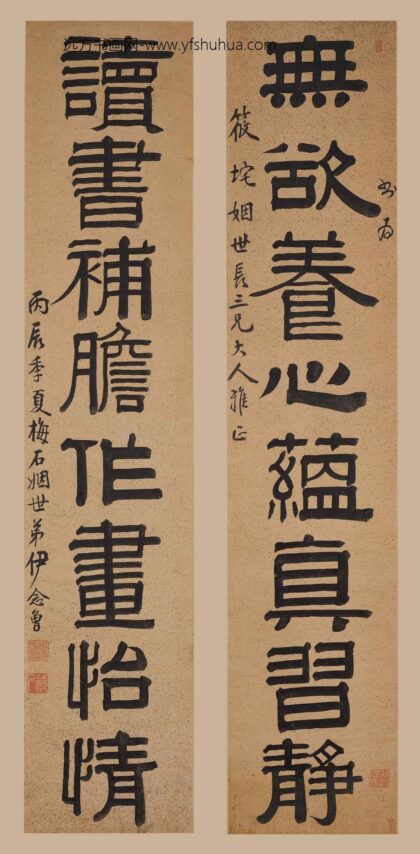 远方书画网-www.yfshuhua.com
書為
無欲養心蘊真習靜
筱坨姻世長三兄大人雅正
讀書補膽作畫怡情
丙辰季夏梅石姻世弟伊念曾